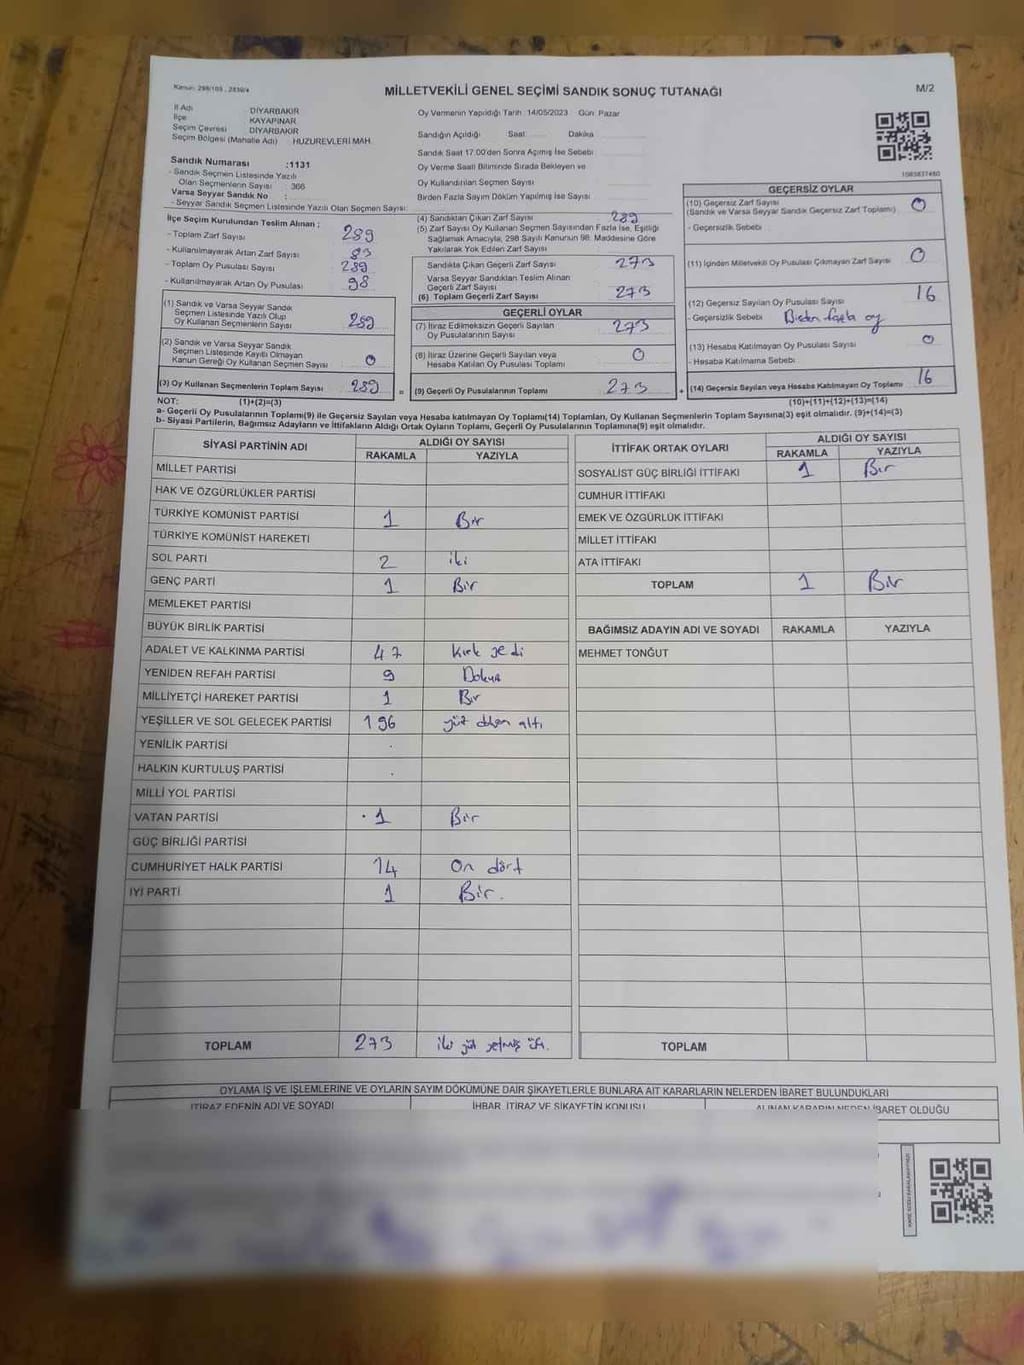 Kanun: 298/105 , 2839/4
MİLLETVEKİLİ GENEL SEÇİMİ SANDIK SONUÇ TUTANAĞI
M/2
İl Adı DİYARBAKIR
İlçe KAYAPINAR
Seçim Çevresi DİYARBAKIR
Seçim Bölgesi (Mahalle Adı) HUZUREVLERİ MAH.
Sandık Numarası :1131
- Sandık Seçmen Listesinde Yazılı
Olan Seçmenlerin Sayısı : 366
Varsa Seyyar Sandık No :
- Seyyar Sandık Seçmen Listesinde Yazılı Olan Seçmen Sayısı:
Oy Vermenin Yapıldığı Tarih: 14/05/2023 Gün: Pazar
Sandığın Açıldığı Saat Dakika
Sandık Saat 17.00'den Sonra Açılmış İse Sebebi
Oy Verme Saati Bitiminde Sırada Bekleyen ve
Oy Kullandırılan Seçmen Sayısı
Birden Fazla Sayım Döküm Yapılmış İse Sayısı
İlçe Seçim Kurulundan Teslim Alınan ;
- Toplam Zarf Sayısı 289
- Kullanılmayarak Artan Zarf Sayısı 83
- Toplam Oy Pusulası Sayısı 289
- Kullanılmayarak Artan Oy Pusulası 98
(1) Sandık ve Varsa Seyyar Sandık
Seçmen Listesinde Yazılı Olup
Oy Kullanan Seçmenlerin Sayısı 289
(2) Sandık ve Varsa Seyyar Sandık
Seçmen Listesinde Kayıtlı Olmayan
Kanun Gereği Oy Kullanan Seçmen Sayısı 0
(3) Oy Kullanan Seçmenlerin Toplam Sayısı 289 =
(4) Sandıktan Çıkan Zarf Sayısı 289
(5) Zarf Sayısı Oy Kullanan Seçmen Sayısından Fazla İse, Eşitliği
Sağlamak Amacıyla, 298 Sayılı Kanunun 98. Maddesine Göre
Yakılarak Yok Edilen Zarf Sayısı
Sandıkta Çıkan Geçerli Zarf Sayısı 273
Varsa Seyyar Sandıktan Teslim Alınan
Geçerli Zarf Sayısı
(6) Toplam Geçerli Zarf Sayısı 273
GEÇERLİ OYLAR
(7) İtiraz Edilmeksizin Geçerli Sayılan
Oy Pusulalarının Sayısı 273
(8) İtiraz Üzerine Geçerli Sayılan veya
Hesaba Katılan Oy Pusulaları Toplamı 0
(9) Geçerli Oy Pusulalarının Toplamı 273 +
GEÇERSİZ OYLAR
(10) Geçersiz Zarf Sayısı 0
(Sandık ve Varsa Seyyar Sandık Geçersiz Zarf Toplamı)
- Geçersizlik Sebebi
(11) İçinden Milletvekili Oy Pusulası Çıkmayan Zarf Sayısı 0
(12) Geçersiz Sayılan Oy Pusulası Sayısı 16
- Geçersizlik Sebebi Birden fazla oy
(13) Hesaba Katılmayan Oy Pusulası Sayısı 0
- Hesaba Katılmama Sebebi
(14) Geçersiz Sayılan veya Hesaba Katılmayan Oy Toplamı 16
NOT: (1)+(2)=(3) (10)+(11)+(12)+(13)=(14)
a- Geçerli Oy Pusulalarının Toplamı(9) ile Geçersiz Sayılan veya Hesaba katılmayan Oy Toplamı(14) Toplamları, Oy Kullanan Seçmenlerin Toplam Sayısına(3) eşit olmalıdır. (9)+(14)=(3)
b- Siyasi Partilerin, Bağımsız Adayların ve İttifakların Aldığı Ortak Oyların Toplamı, Geçerli Oy Pusulalarının Toplamına(9) eşit olmalıdır.
SİYASİ PARTİNİN ADI ALDIĞI OY SAYISI
RAKAMLA YAZIYLA
MİLLET PARTİSİ
HAK VE ÖZGÜRLÜKLER PARTİSİ
TÜRKİYE KOMÜNİST PARTİSİ 1 Bir
TÜRKİYE KOMÜNİST HAREKETİ
SOL PARTİ 2 iki
GENÇ PARTİ 1 Bir
MEMLEKET PARTİSİ
BÜYÜK BİRLİK PARTİSİ
ADALET VE KALKINMA PARTİSİ 47 Kırk yedi
YENİDEN REFAH PARTİSİ 9 Dokuz
MİLLİYETÇİ HAREKET PARTİSİ 1 Bir
YEŞİLLER VE SOL GELECEK PARTİSİ 196 yüz doksan altı
YENİLİK PARTİSİ
HALKIN KURTULUŞ PARTİSİ
MİLLİ YOL PARTİSİ
VATAN PARTİSİ 1 Bir
GÜÇ BİRLİĞİ PARTİSİ
CUMHURİYET HALK PARTİSİ 14 On dört
İYİ PARTİ 1 Bir.
TOPLAM 273 iki yüz yetmiş üç.
İTTİFAK ORTAK OYLARI ALDIĞI OY SAYISI
RAKAMLA YAZIYLA
SOSYALİST GÜÇ BİRLİĞİ İTTİFAKI 1 Bir
CUMHUR İTTİFAKI
EMEK VE ÖZGÜRLÜK İTTİFAKI
MİLLET İTTİFAKI
ATA İTTİFAKI
TOPLAM 1 Bir
BAĞIMSIZ ADAYIN ADI VE SOYADI RAKAMLA YAZIYLA
MEHMET TONĞUT
TOPLAM
OYLAMA İŞ VE İŞLEMLERİNE VE OYLARIN SAYIM DÖKÜMÜNE DAİR ŞİKAYETLERLE BUNLARA AİT KARARLARIN NELERDEN İBARET BULUNDUKLARI
İTİRAZ EDENİN ADI VE SOYADI İHBAR, İTİRAZ VE ŞİKAYETİN KONUSU ALINAN KARARIN NEDEN İBARET OLDUĞU